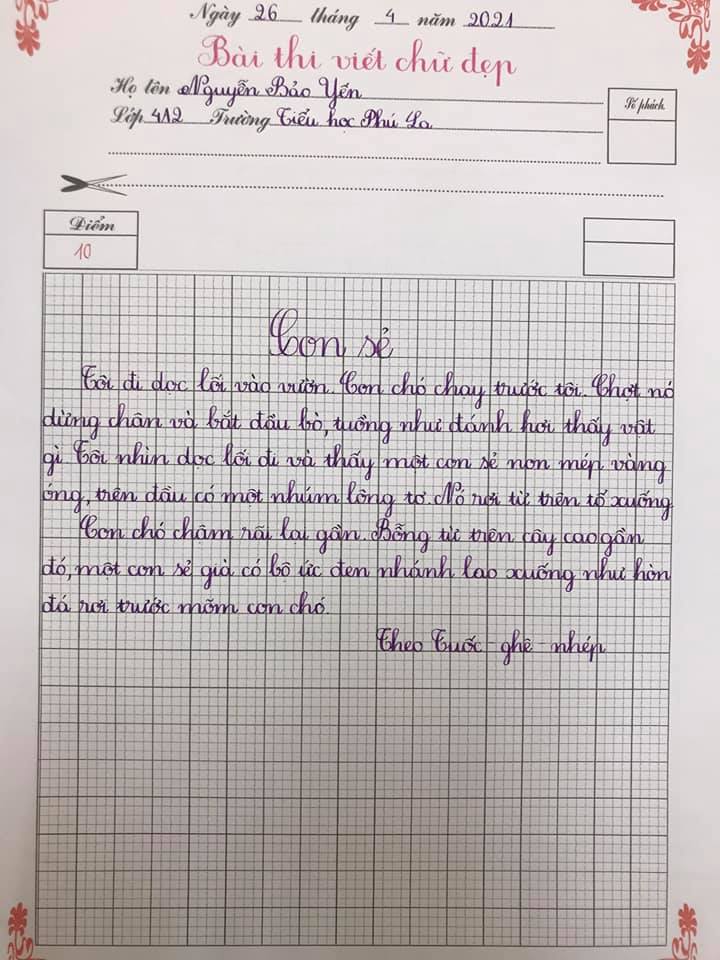 Ngày 26 tháng 4 năm 2021
Bài thi viết chữ đẹp
Họ tên Nguyễn Bảo Yến
Số phách
Lớp 4A2 Trường Tiểu học Phú La
Điểm
10
Con sẻ
Tôi đi dọc lối vào vườn. Con chó chạy trước tôi. Chợt nó
dừng chân và bắt đầu bò, tuồng như đánh hơi thấy vật
gì. Tôi nhìn dọc lối đi và thấy một con sẻ non mép vàng
óng, trên đầu có một nhúm lông tơ. Nó rơi từ trên tổ xuống
Con chó chậm rãi lại gần. Bỗng từ trên cây cao gần
đó, một con sẻ già có bộ ức đen nhánh lao xuống như hòn
đá rơi trước mõm con chó.
Theo Tuốc - ghê - nhép